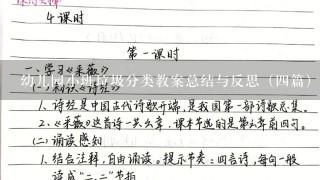 4课时
第一课时
一、学习《采薇》
幼儿园小班垃圾分类教案总结与反思（四篇）
(一)初识《诗经》
1、诗经是中国古代诗歌开端,是我国第一部诗歌总集。
2、《采薇》这首诗一共六章,课本节选的是第六章前四句。
(二)诵读感知
1、结合注释,自由诵读。提示节奏:四言诗,每句一般
读成"二、二"节拍